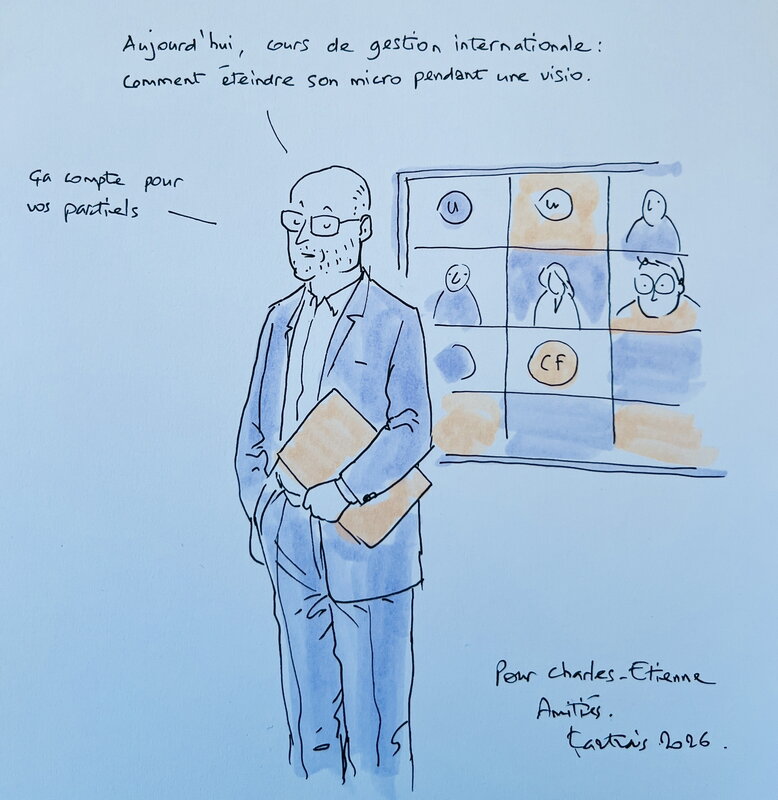 Aujourd'hui, cours de gestion internationale :
Comment éteindre son micro pendant une visio.
ça compte pour
vos partiels
U
CF
Pour Charles-Etienne
Amitiés.
2026.